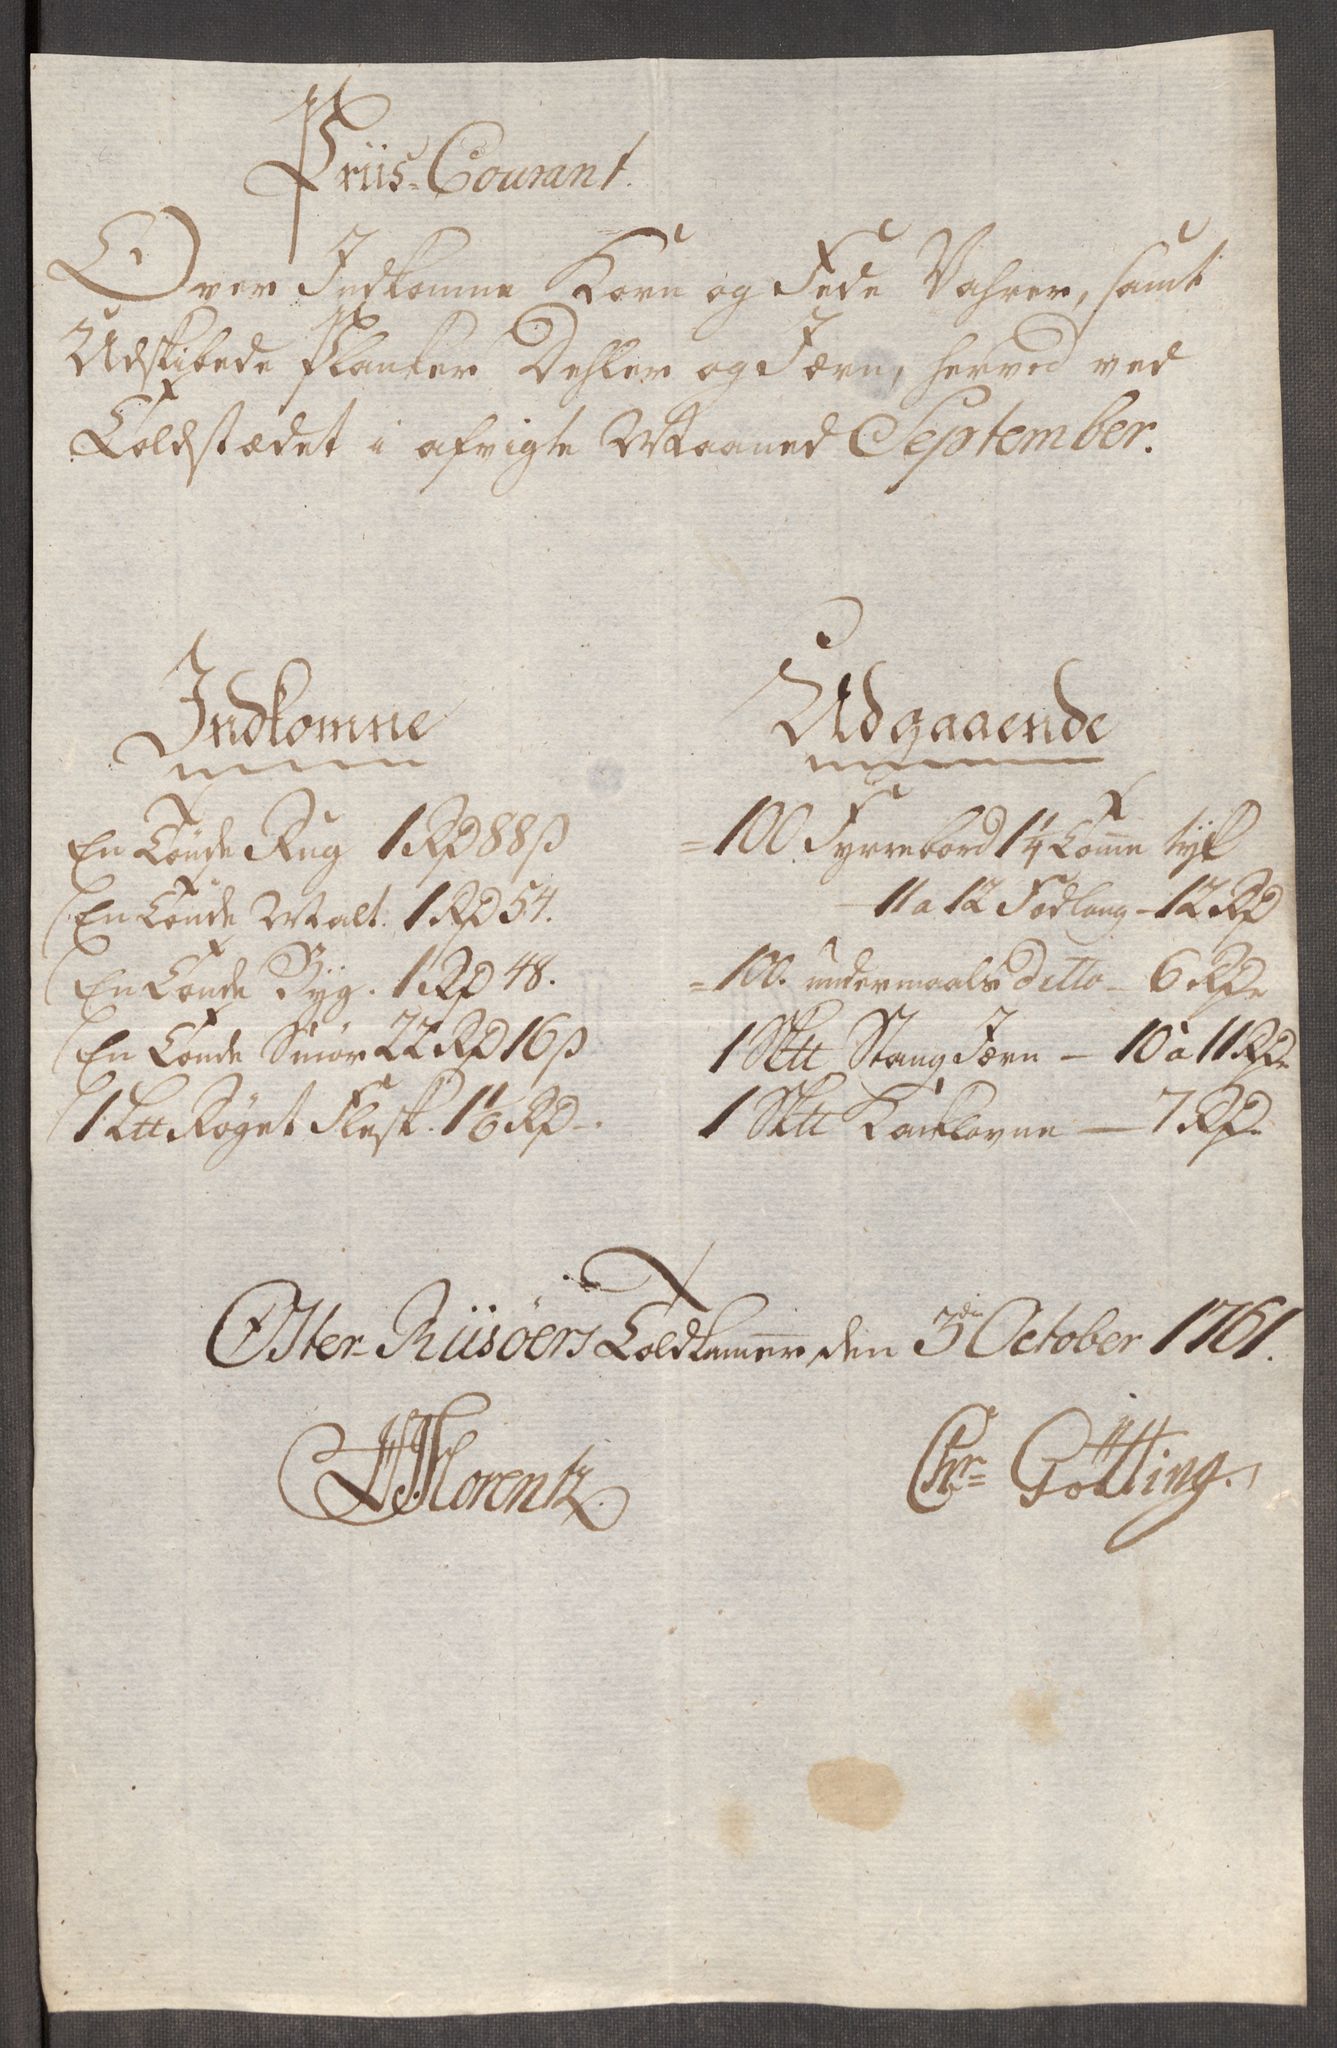 Priis-Courant.
Over Indkomne Korn og Fede Vahrer, samt
Udskibede Planker Dehler og Jærn, herved ved
Toldstædet i afvigte Maaned September.
Indkomne
En Tønde Rug 1 Rd 88 ß
En Tønde Malt. 1 Rd 54.
En Tønde Byg. 1 Rd 48.
En Tønde Smør 22 Rd 16 ß
1 Ltt Røget Flesk. 1 1/6 Rd.
Udgaaende
= 100 Fyrrebord 1 1/4 Tomme tyk
11 a 12 Fod lang - 12 Rd
= 100. undermaals ditto - 6 Rd.
1 Sktt Stang Jærn - 10 a 11 Rd.
1 Sktt Kackelovne - 7 Rd.
Øster-Riisøers Toldkammer den 3de October 1761.
Florentz.
Chr. Götting.